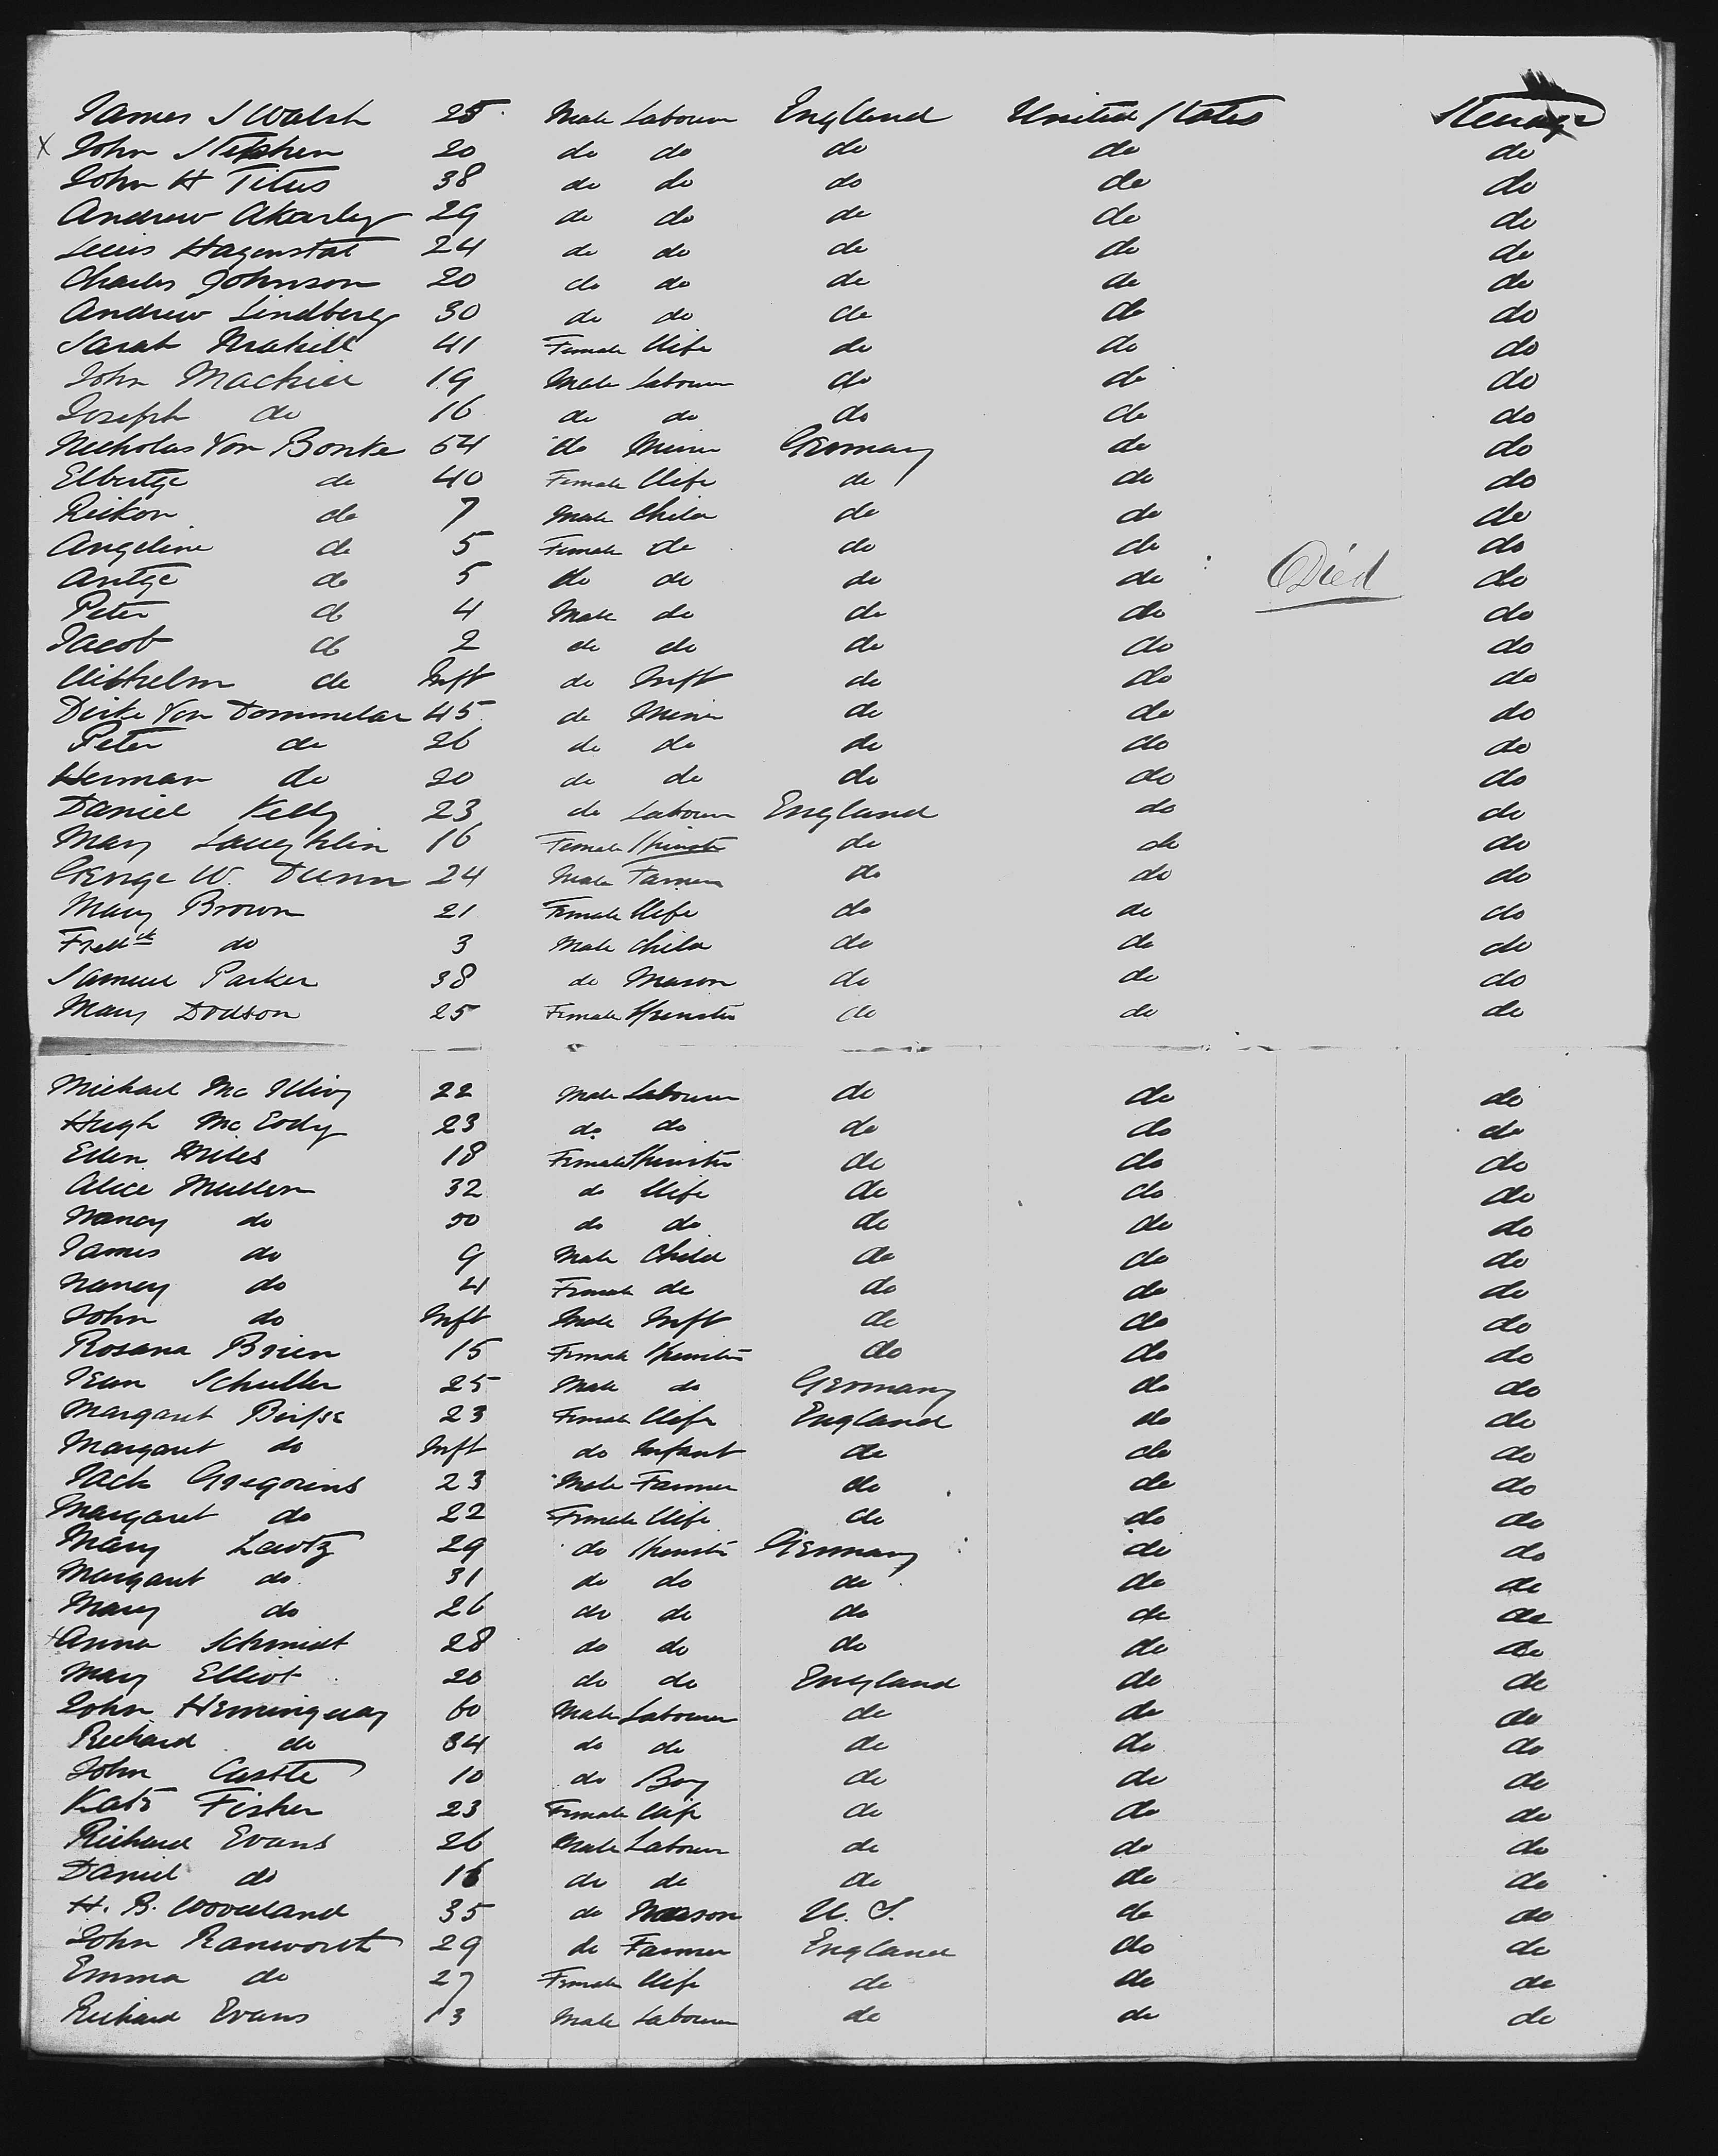 James J Walsh 25 Male Labourer England United States Steerage
X John Stephen 20 do do do do do
John H Titus 38 do do do do do
Andrew Akarley 29 do do do do do
Louis Hagenstat 24 do do do do do
Charles Johnson 20 do do do do do
Andrew Lindberg 30 do do do do do
Sarah 41 Female Wife do do do
John Mackill 19 Male Labourer do do do
Joseph do 16 do do do do do
Nicholas Von Bonke 54 do Miner Germany do do
Elbertge do 40 Female Wife do do do
Reikon do 7 Male Child do do do
Angeline do 5 Female do do do do
Antge do 5 do do do do Died do
Peter do 4 Male do do do do
Jacob do 2 do do do do do
Wilhelm do Inft do Inft do do do
Dirke Von Dommelar 45 do Miner do do do
Peter do 26 do do do do do
Herman do 20 do do do do do
Daniel Kelly 23 do Labourer England do do
Mary Laughlin 16 Female Spinster do do do
George W. Dunn 24 Male Farmer do do do
Mary Brown 21 Female Wife do do do
Fredck do 3 Male Child do do do
Samuel Parker 38 do Mason do do do
Mary Dodson 25 Female Spinster do do do
Michael Mc 22 Male Labourer do do do
Hugh Mc Eody 23 do do do do do
Ellen Miles 18 Female Spinster do do do
Alice Mullen 32 do Wife do do do
Nancy do 50 do do do do do
James do 9 Male Child do do do
Nancy do 4 Female do do do do
John do Inft Male Inft do do do
Rosana Brien 15 Female Spinster do do do
Jean Schuller 25 Male do Germany do do
Margaret 23 Female Wife England do do
Margaret do Inft do Infant do do do
Jack Gregorins 23 Male Farmer do do do
Margaret do 22 Female Wife do do do
Mary Lawtz 29 do Spinster Germany do do
Margaret do 31 do do do do do
Mary do 26 do do do do do
Anna Schmidt 28 do do do do do
Mary Elliot 20 do do England do do
John Hemingway 60 Male Labourer do do do
Richard do 34 do do do do do
John Castle 10 do Boy do do do
Kate Fisher 23 Female Wife do do do
Richard Evans 26 Male Labourer do do do
Daniel do 16 do do do do do
H. B. Woodland 35 do Mason U. S. do do
John Ranworth 29 do Farmer England do do
Emma do 27 Female Wife do do do
Richard Evans 13 Male Labourer do do do